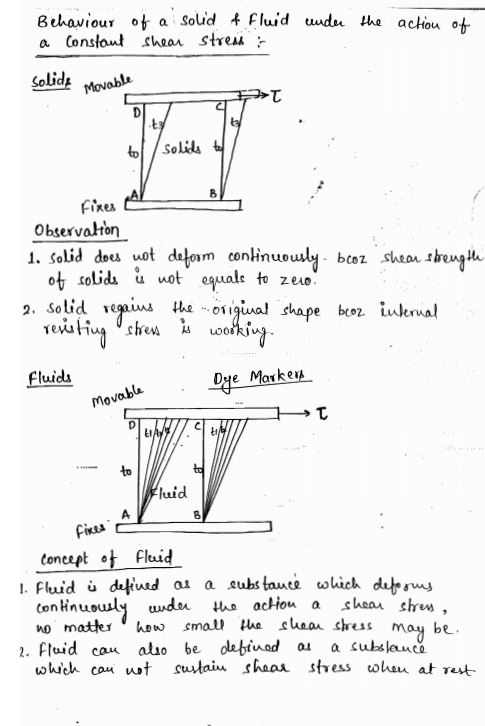 Behaviour of a solid & Fluid under the action of
a Constant shear stress :-
Solids
Movable
τ
D
C
t3
t3
to
Solids
to
A
B
Fixes
Observation
1. Solid does not deform continuously bcoz shear strength
of solids is not equals to zero.
2. Solid regains the original shape bcoz internal
resisting stress is working.
Fluids
Dye Markers
Movable
τ
D
t1
C
t1
to
to
Fluid
A
B
Fixes
Concept of Fluid
1. Fluid is defined as a substance which deforms
continuously under the action a shear stress,
no matter how small the shear stress may be.
2. Fluid can also be defined as a substance
which can not sustain shear stress when at rest